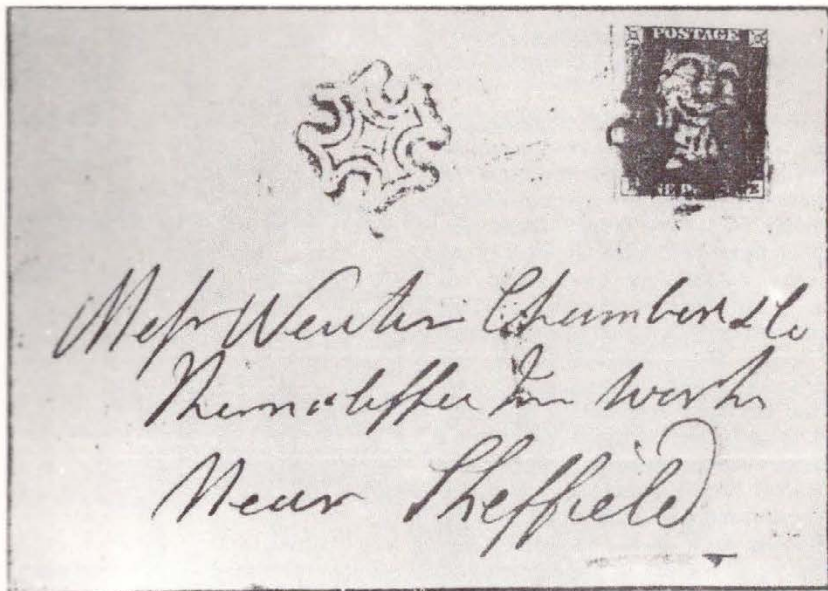 POSTAGE
Messr Newton Chambers & Co
Thorncliffe Iron Works
Near Sheffield